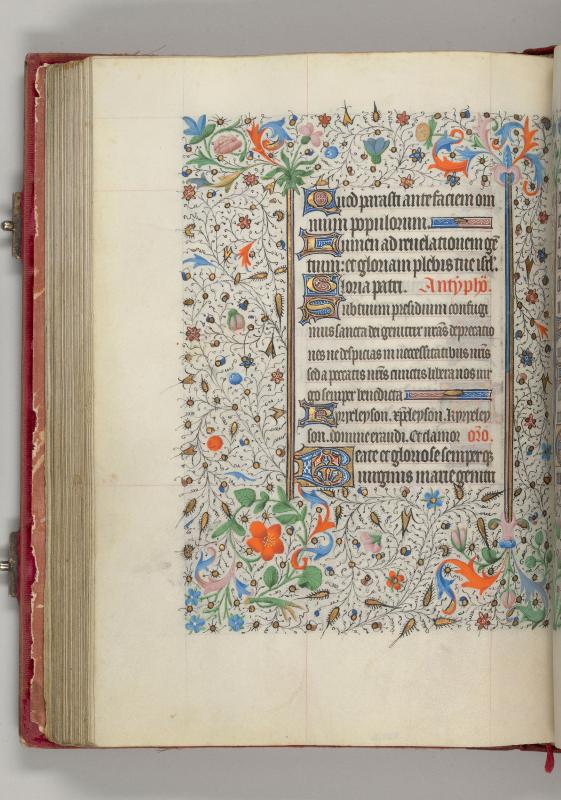 Quod parasti ante faciem om
nium populorum.
Lumen ad reuelationem gẽ
tium: et gloriam plebis tue isrł.
Gloria patri. Antypho.
Sub tuum presidium confugi
mus sancta dei genitrix nr̃as deprecatio
nes ne despicias in necessitatibus nr̃is
sed a peccatis nr̃is cunctis libera nos uir
go semper benedicta
Kyrieleyson. xp̃eleyson. kyrieley
son. domine exaudi. Et clamor oro.
Beate et gloriose semperq;
uirginis marie genitri